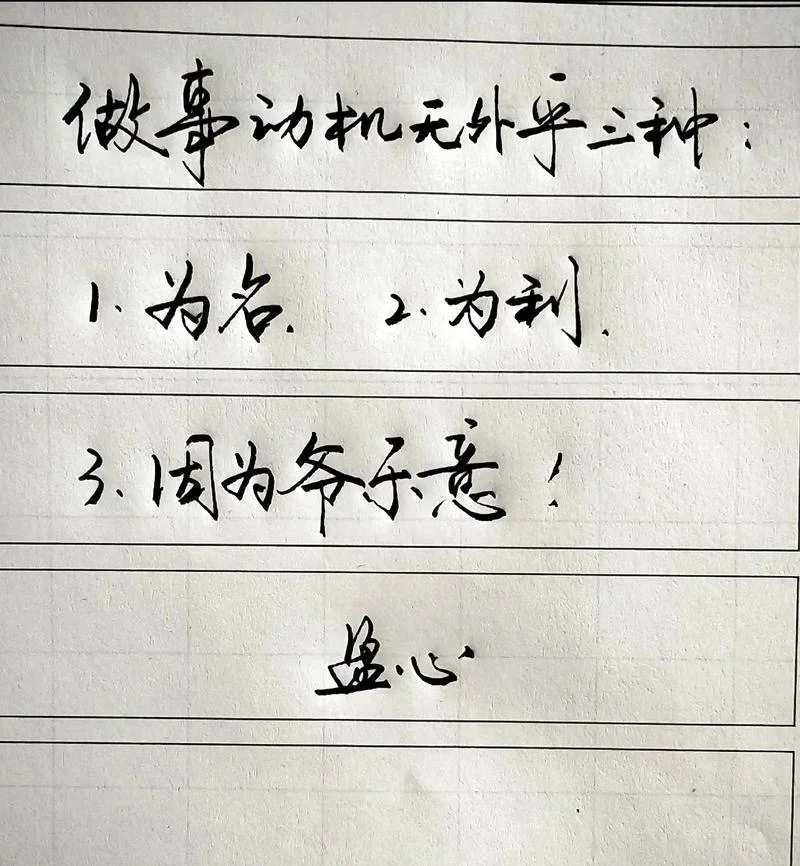 做事动机无外乎三种：
1.为名. 2.为利.
3.因为爷乐意！
盈心